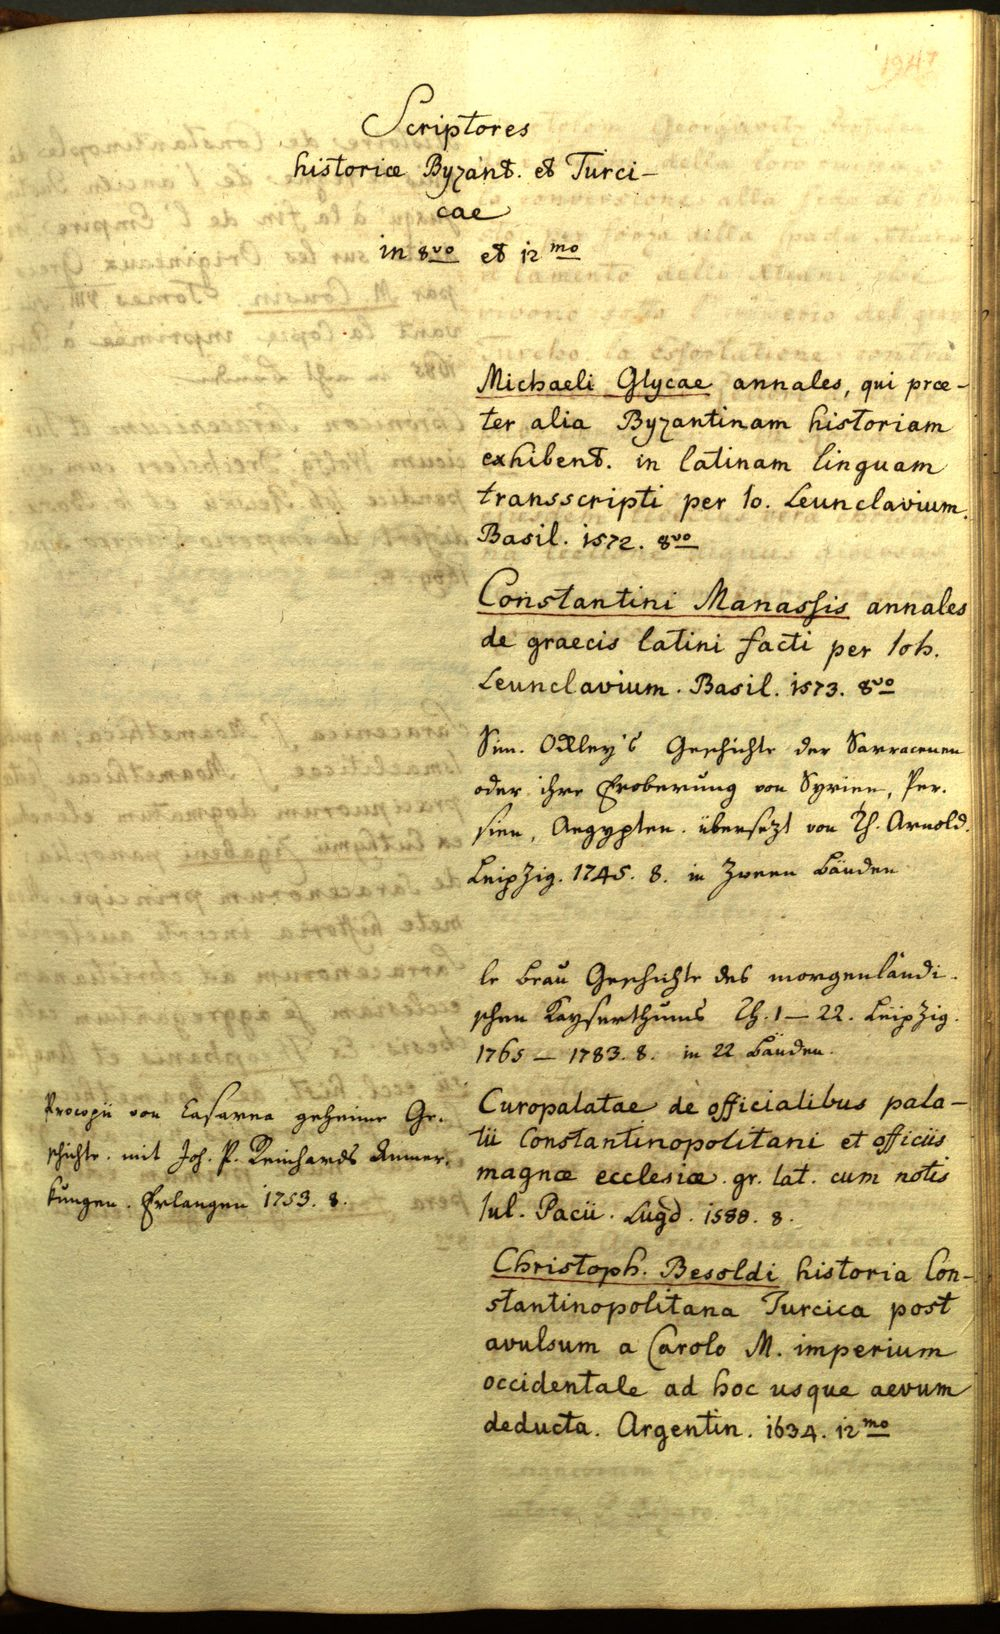 1947
Scriptores
historiæ Byzant. et Turci-
cae
in 8vo et 12mo
Michaeli Glycae annales, qui præ-
ter alia Byzantinam historiam
exhibent. in latinam linguam
transscripti per Io. Leunclavium.
Basil. 1572. 8vo
Constantini Manassis annales
de graecis latini facti per Ioh.
Leunclavium. Basil. 1573. 8vo
Sim. Ockley's Geschichte der Sarracenen
oder ihre Eroberung von Syrien, Per-
sien, Aegypten. übersetzt von Th. Arnold.
Leipzig. 1745. 8. in zween Bänden
le Beau Geschichte des morgenländi-
schen Kayserthums Th. 1-22. Leipzig.
1765-1783. 8. in 22 Bänden.
Procopii von Cäsarea geheime Ge-
schichte. mit Joh. P. Reinhards Anmer-
kungen. Erlangen 1753. 8.
Curopalatae de officialibus pala-
tii Constantinopolitani et officiis
magnæ ecclesiæ. gr. lat. cum notis
Iul. Pacii. Lugd. 1588. 8.
Christoph. Besoldi historia Con-
stantinopolitana Turcica post
avulsum a Carolo M. imperium
occidentale ad hoc usque aevum
deducta. Argentin. 1634. 12mo